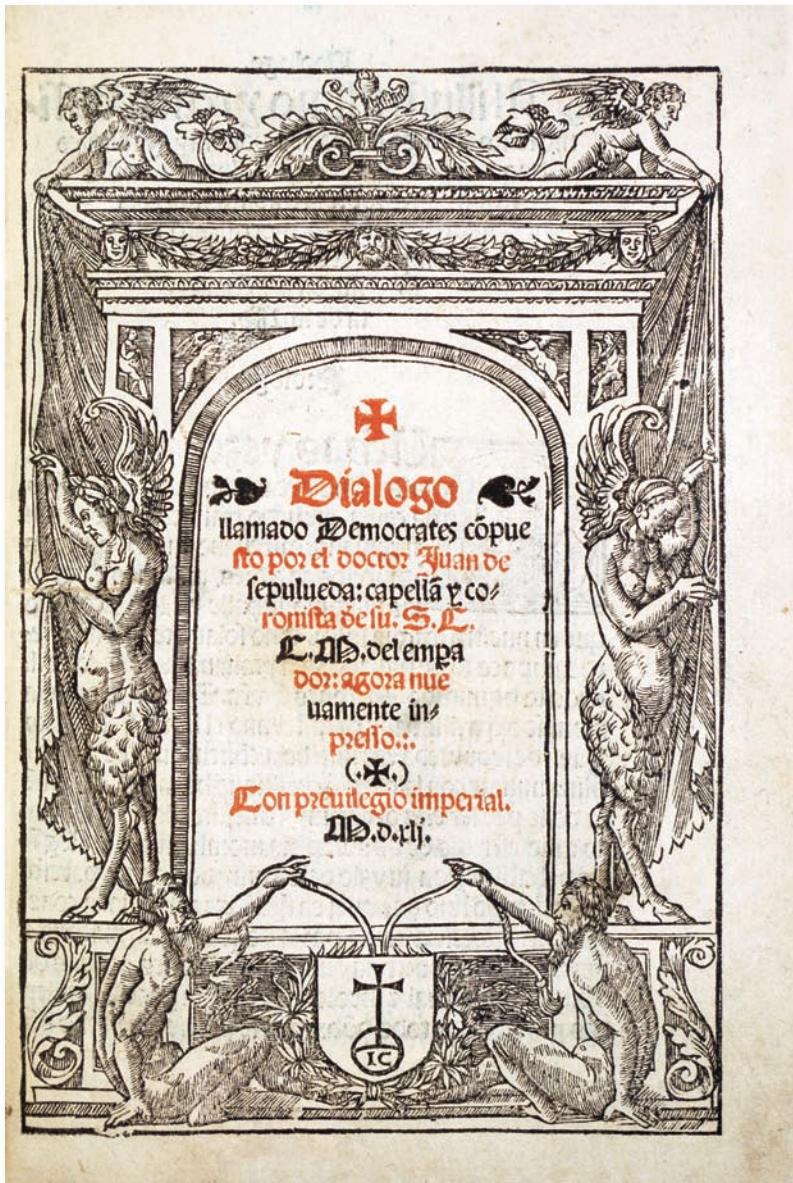 Dialogo
llamado Democrates cõpue
sto por el doctor Juan de
sepulueda: capellã y co⸗
ronista de su. S. C.
C. M. del empa
dor: agora nue
uamente in⸗
presso.:.
(.✠.)
Con preuilegio imperial.
M.d.xlj.
IC